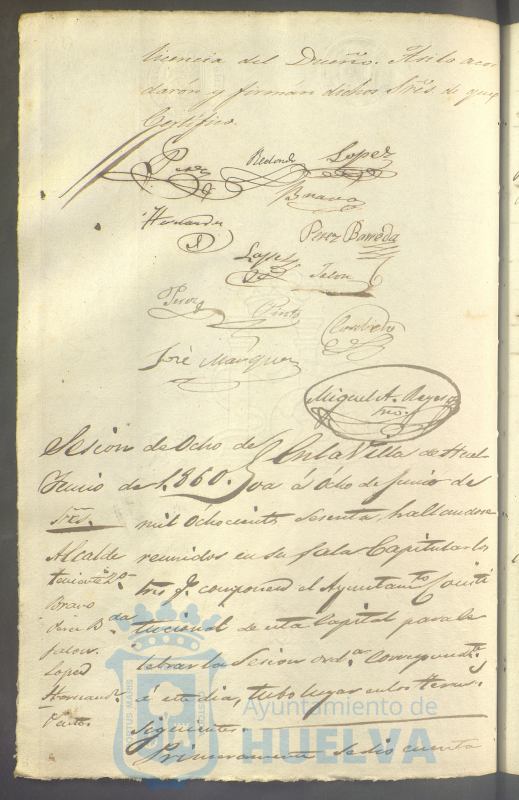 licencia del Dueño. Asi lo acor
daron y firmán dichos Sres. de que
Certifico.
Perez Redondo Lopez
Bravo
Hernandez Perez Barreda
Lopez
Perez Pinto
José Marquez
Miguel A. Reyes
Srio.
Sesion de Ocho de
Junio de 1.860.
Sres.
Alcalde
teniente 2º
Bravo
Perez Bda
Lopez
Hernandz
Pinto
En la Villa de Huel-
va á Ocho de Junio de
mil Ochocients Sesenta, hallandose
reunidos en su Sala Capitular los
Sres q. componen el Ayuntamto Consti
tucional de esta Capital para ce
lebrar la Sesion orda. correspondte.
á este dia, tubo lugar en los termi-
siguientes.
Primeramente se dio cuenta
Ayuntamiento de
HUELVA